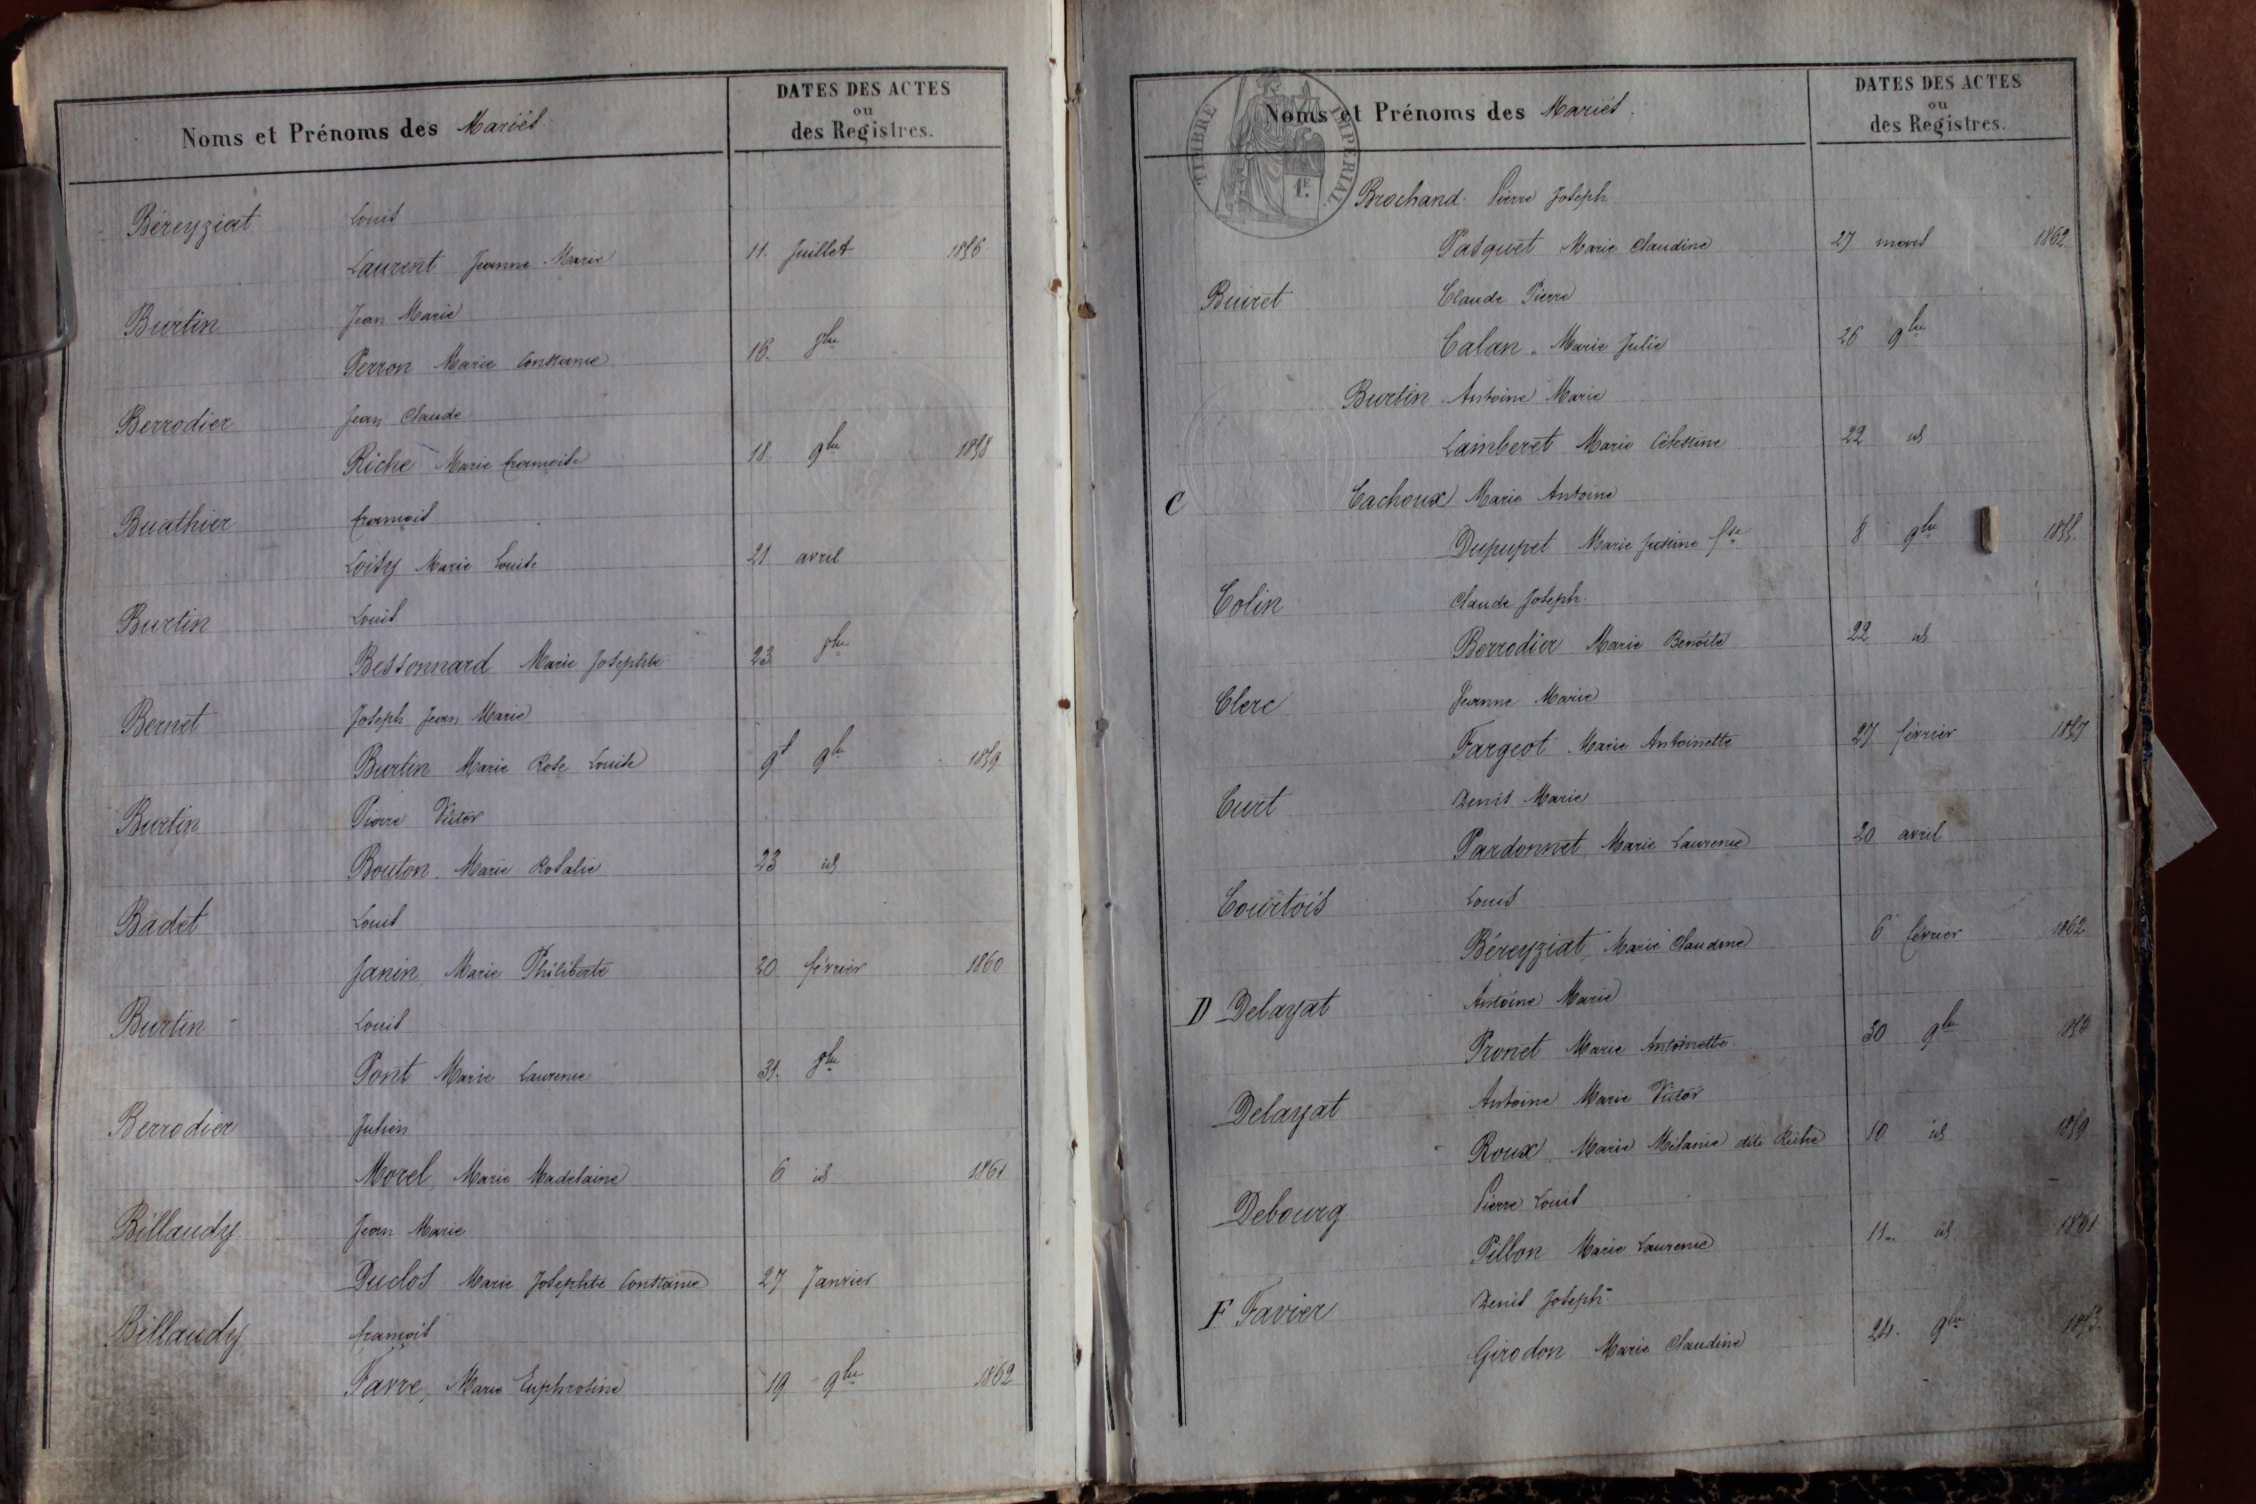 Noms et Prénoms des Mariés
DATES DES ACTES
ou
des Registres.
Béreyziat Louis
Laurent Jeanne Marie 11. Juillet 1856
Burtin Jean Marie
Perron Marie Constance 18. 8bre
Berrodier Jean Claude
Riche Marie Françoise 18 9bre 1858
Buathier François
Loisy Marie Louise 21 avril
Burtin Louis
Bessonnard Marie Josephte 23 8bre
Bernet Joseph Jean Marie
Burtin Marie Rose Louise 9bre 1859
Burtin Pierre Victor
Bouton Marie Rosalie 23 id
Badet Louis
Janin, Marie Philiberte 20 février 1860
Burtin Louis
Pont Marie Laurence 31. 8bre
Berrodier Julien
Morel, Marie Madelaine 6 id 1861
Billaudy Jean Marie
Duclos Marie Josephte Constance 27 Janvier
Billaudy François
Favre, Marie Euphrosine 19 9bre 1862
Noms et Prénoms des Mariés.
DATES DES ACTES
ou
des Registres.
TIMBRE IMPERIAL
1E.
Brochand Pierre Joseph
Pasquet Marie Claudine 27 mars 1862
Buiret Claude Pierre
Calan Marie Julie 26 9bre
Burtin Antoine Marie
Lamberet Marie Célestine 22 id
C Cachoux Marie Antoine
Dupupet Marie Justine fse 8 9bre 1855.
Colin Claude Joseph
Berrodier Marie Benoîte 22 id
Clerc Jeanne Marie
Fargeot Marie Antoinette 27 février 1857
Curt Denis Marie
Pardonnet, Marie Laurence 20 avril
Courtois Louis
Béreyziat, Marie Claudine 6 février 1862
D Delayat Antoine Marie
Pronet Marie Antoinette 30 9bre 1856
Delayat Antoine Marie Victor
Roux Marie Mélanie dite Riche 10 id 1859
Debourg Pierre Louis
Pillon Marie Laurence 11 id 1861
F Favier Denis Joseph
Girodon Marie Claudine 24. 9bre